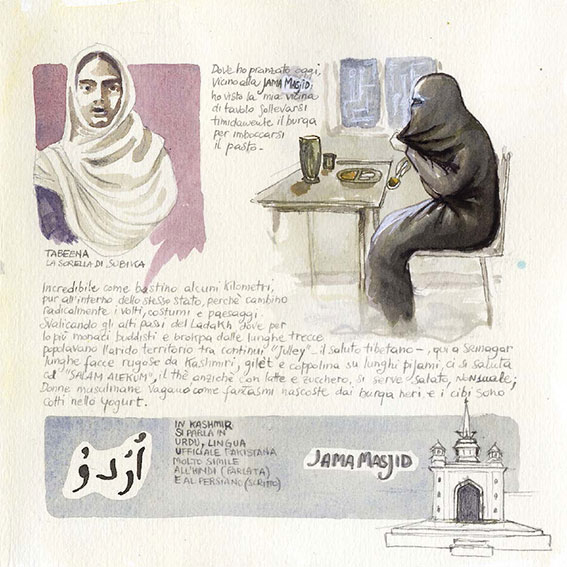 Dove ho pranzato oggi,
vicino alla JAMA MASJID,
ho visto la mia vicina
di tavolo sollevarsi
timidamente il burqa
per imboccarsi
il pasto -
TABEENA
LA SORELLA DI
Incredibile come bastino alcuni kilometri,
pur all'interno dello stesso stato, perché cambino
radicalmente i volti, costumi e paesaggi.
Svalicando gli alti passi del Ladakh dove per
lo più monaci buddisti e brokpa dalle lunghe trecce
popolavano l'arido territorio tra continui "Julley" - il saluto tibetano -, qui a Srinagar
lunghe facce rugose da Kashmiri, gilet e coppolina su lunghi pijami, ci si saluta
col "SALAM ALEKUM", il thè anziché con latte e zucchero, si serve salato,
Donne musulmane vagano come fantasmi nascoste dai burqa neri e i cibi sono
cotti nello yogurt.
اُردُو
IN KASHMIR
SI PARLA IN
URDU, LINGUA
UFFICIALE PAKISTANA
MOLTO SIMILE
ALL'HINDI (PARLATA)
E AL PERSIANO (SCRITTO)
JAMA MASJID